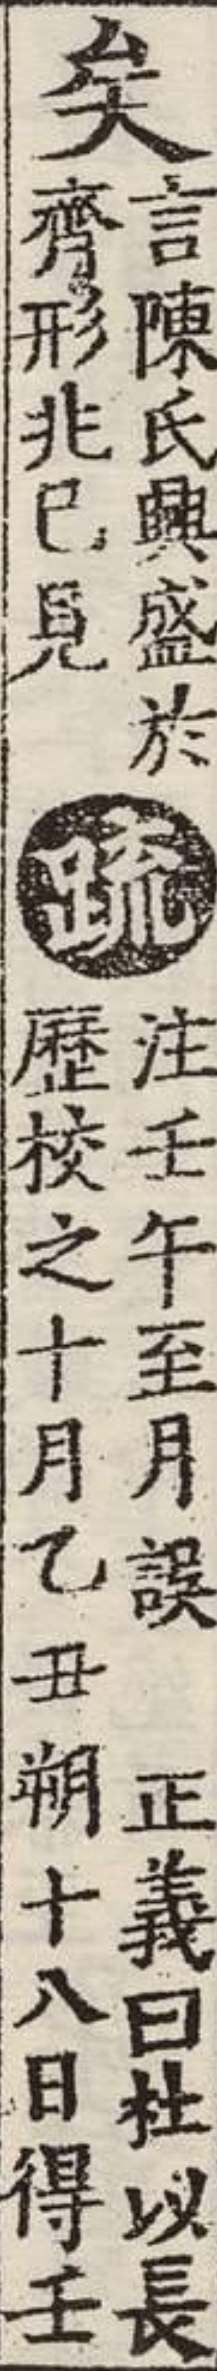 矣
言陳氏興盛於
齊形兆已見
疏
注壬午至月誤　正義曰杜以長
歷校之十月乙丑朔十八日得壬